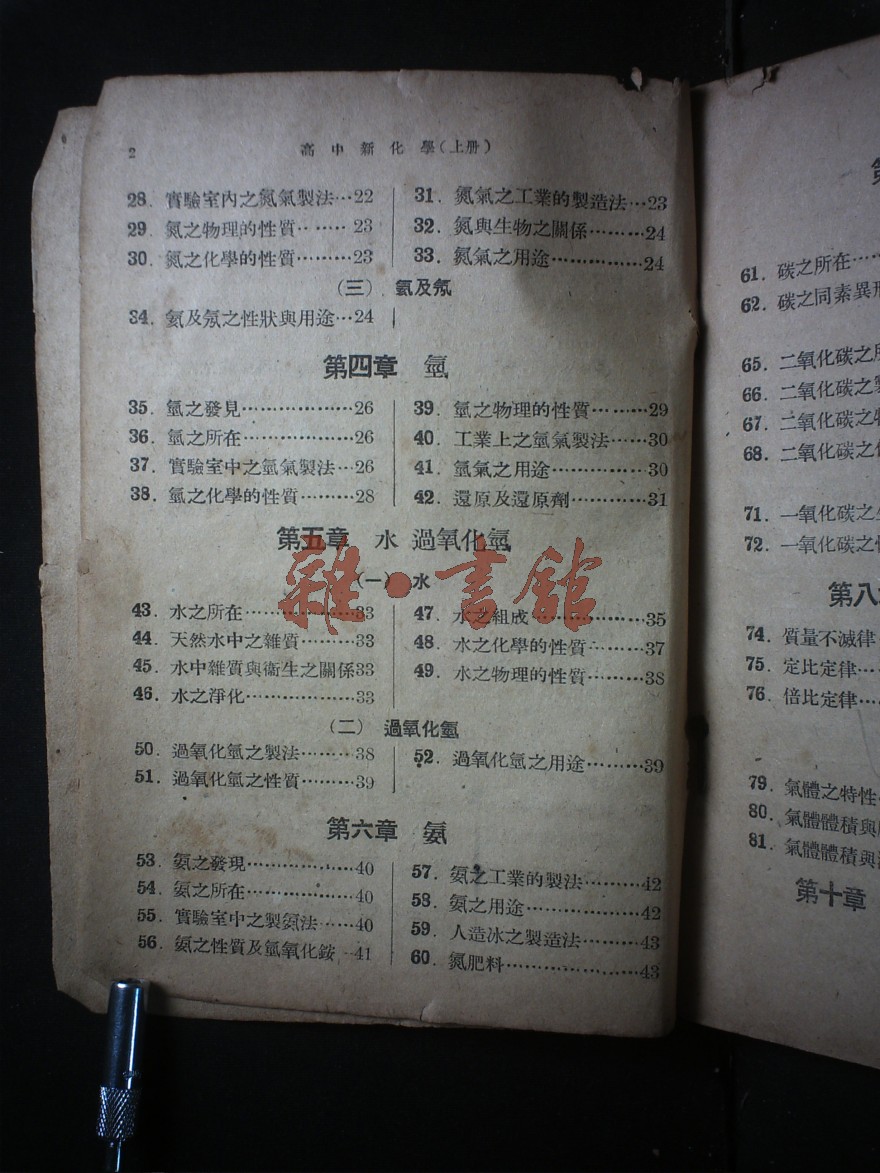 2
高中新化學(上册)
28. 實驗室內之氮氣製法…22
29. 氮之物理的性質………23
30. 氮之化學的性質………23
31. 氮氣之工業的製造法…23
32. 氮與生物之關係………24
33. 氮氣之用途……………24
34. …24
第四章 氫
35. 氫之發見………………26
36. 氫之所在………………26
37. 實驗室中之氫氣製法…26
38. 氫之化學的性質………28
39. 氫之物理的性質………29
40. 工業上之氫氣製法……30
41. 氫氣之用途……………30
42. 還原及還原劑…………31
第五章 水 過氧化氫
(一) 水
43. 水之所在………………33
44. 天然水中之雜質………33
45. 水中雜質與衞生之關係33
46. 水之淨化………………33
47. 水之組成………………35
48. 水之化學的性質………37
49. 水之物理的性質………38
(二) 過氧化氫
50. 過氧化氫之製法………38
51. 過氧化氫之性質………39
52. 過氧化氫之用途………39
第六章 氨
53. 氨之發現………………40
54. 氨之所在………………40
55. 實驗室中之製氨法……40
56. 氨之性質及氫氧化銨…41
57. 氨之工業的製法………42
58. 氨之用途………………42
59. 人造冰之製造法………43
60. 氮肥料…………………43
雜·書館
第
61. 碳之所在……
62. 碳之同素異形
65. 二氧化碳之所
66. 二氧化碳之製
67. 二氧化碳之物
68. 二氧化碳之化
71. 一氧化碳之
72. 一氧化碳之性
第八章
74. 質量不滅律
75. 定比定律…
76. 倍比定律…
79. 氣體之特性
80. 氣體體積與
81. 氣體體積與
第十章